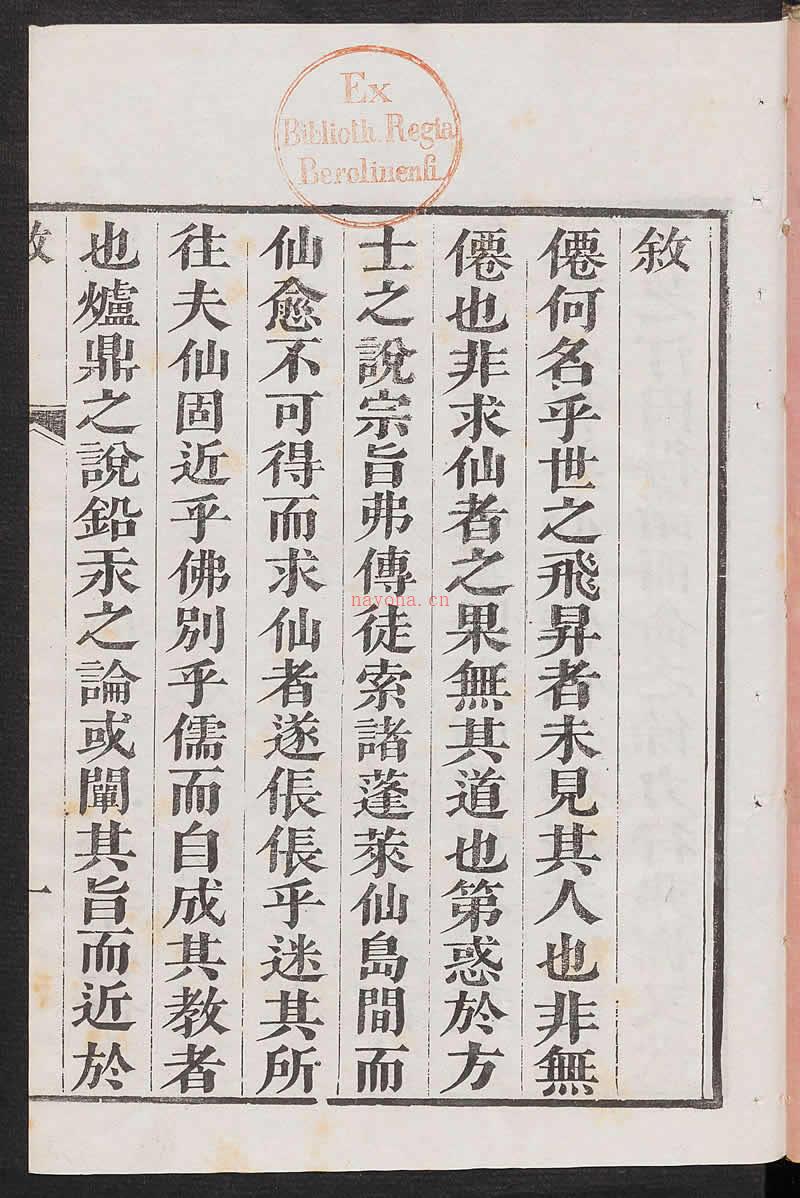 Ex
Biblioth. Regia
Berolinensi.
敘
僊何名乎世之飛昇者未見其人也非無
僊也非求仙者之果無其道也第惑於方
士之說宗旨弗傳徒索諸蓬萊仙島間而
仙愈不可得而求仙者遂倀倀乎迷其所
往夫仙固近乎佛別乎儒而自成其教者
也爐鼎之說鉛汞之論或闡其旨而近於
敘
一
nayona.cn